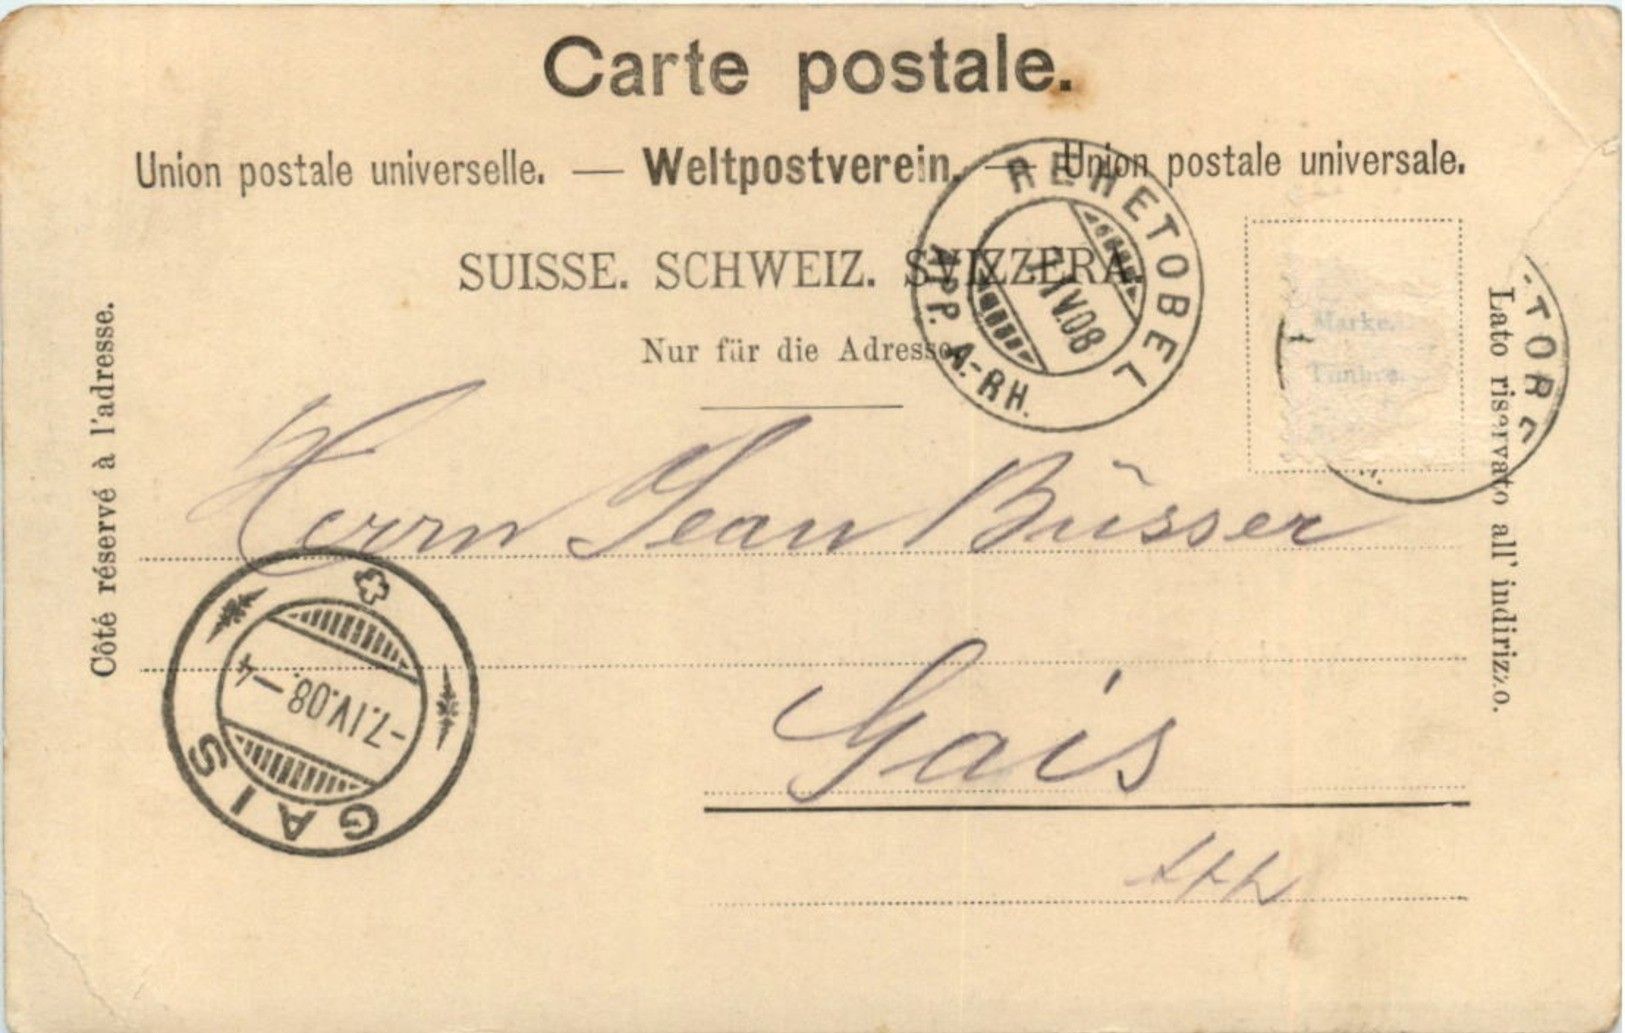 Carte postale.
Union postale universelle. — Weltpostverein. — Union postale universale.
SUISSE. SCHWEIZ. SVIZZERA.
Nur für die Adresse.
Côté réservé à l'adresse.
Lato riservato all' indirizzo.
REHETOBEL
APP. A.-RH.
IV.08
Marke.
Timbre.
Herrn Jean Büsser
Gais
GAIS
-7.IV.08.-4